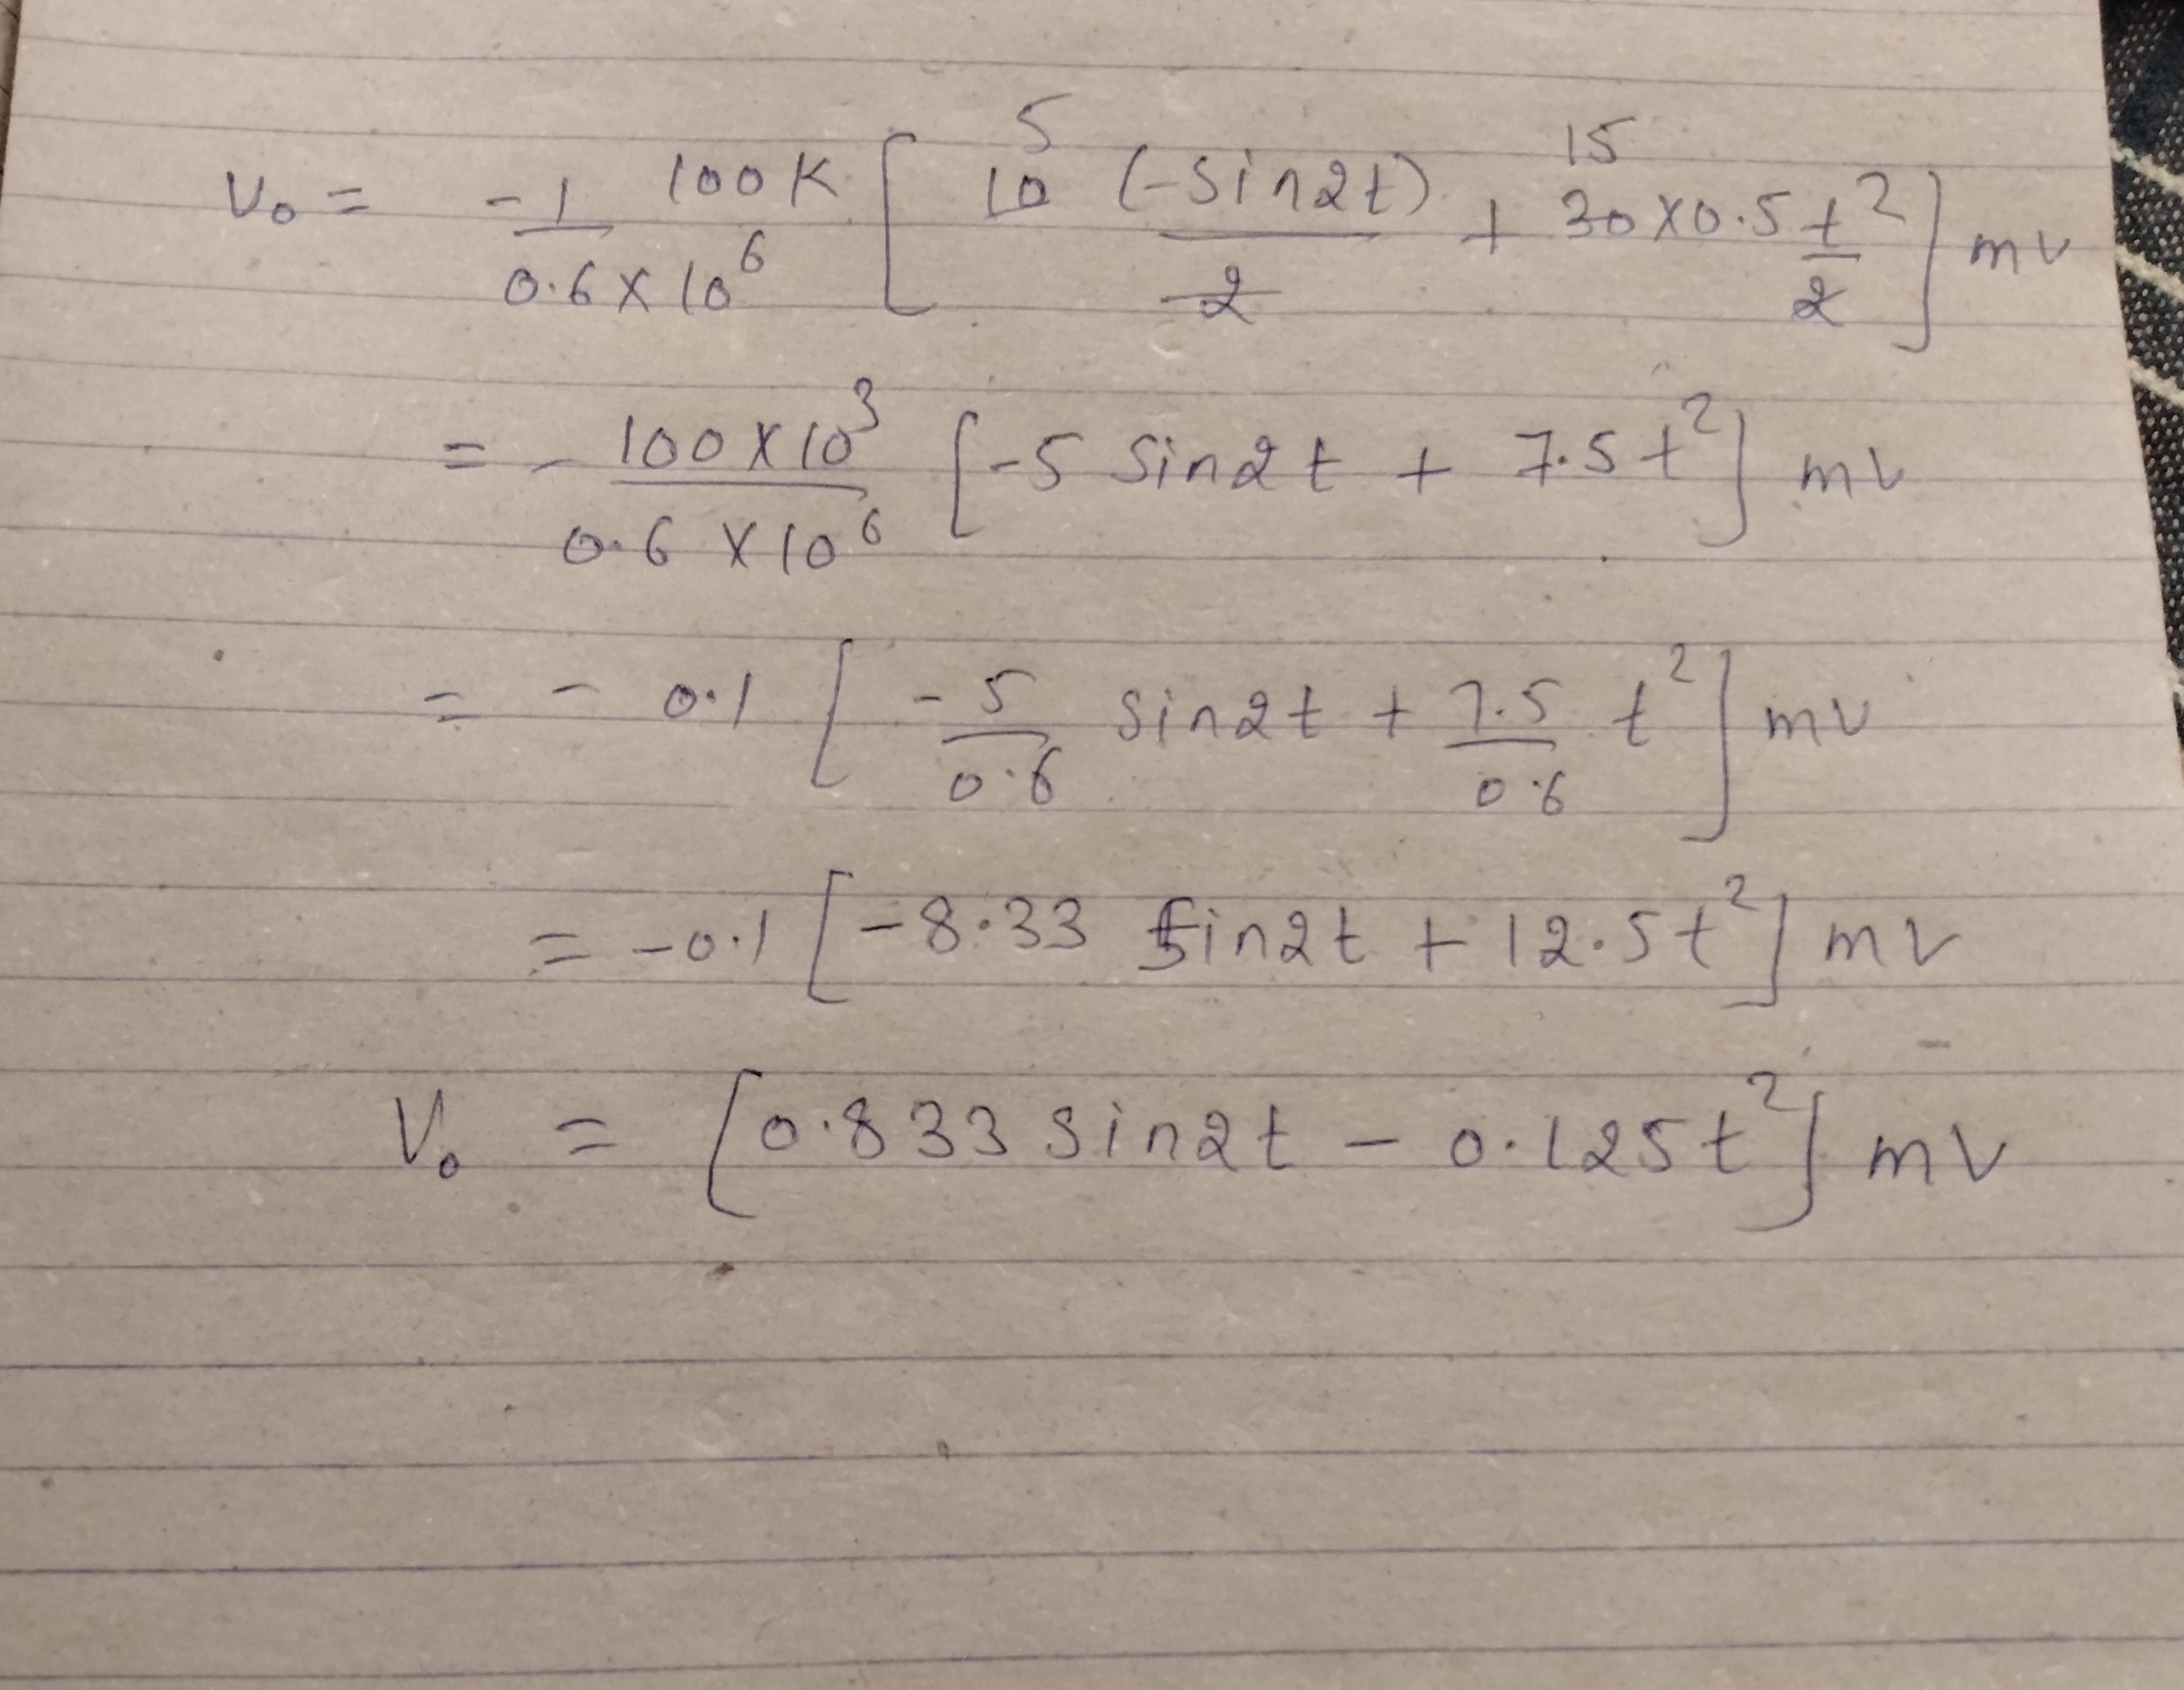 V₀ = -1/(0.6 × 10⁶) 100K [ 10 5 (-sin2t)/2 + 30 15 × 0.5 t²/2 ] mv
= - (100 × 10³)/(0.6 × 10⁶) [-5 sin2t + 7.5t²] mv
= - 0.1 [ -5/0.6 sin2t + 7.5/0.6 t² ] mv
= -0.1 [-8.33 sin2t + 12.5t²] mv
V₀ = [0.833 sin2t - 0.125t²] mv